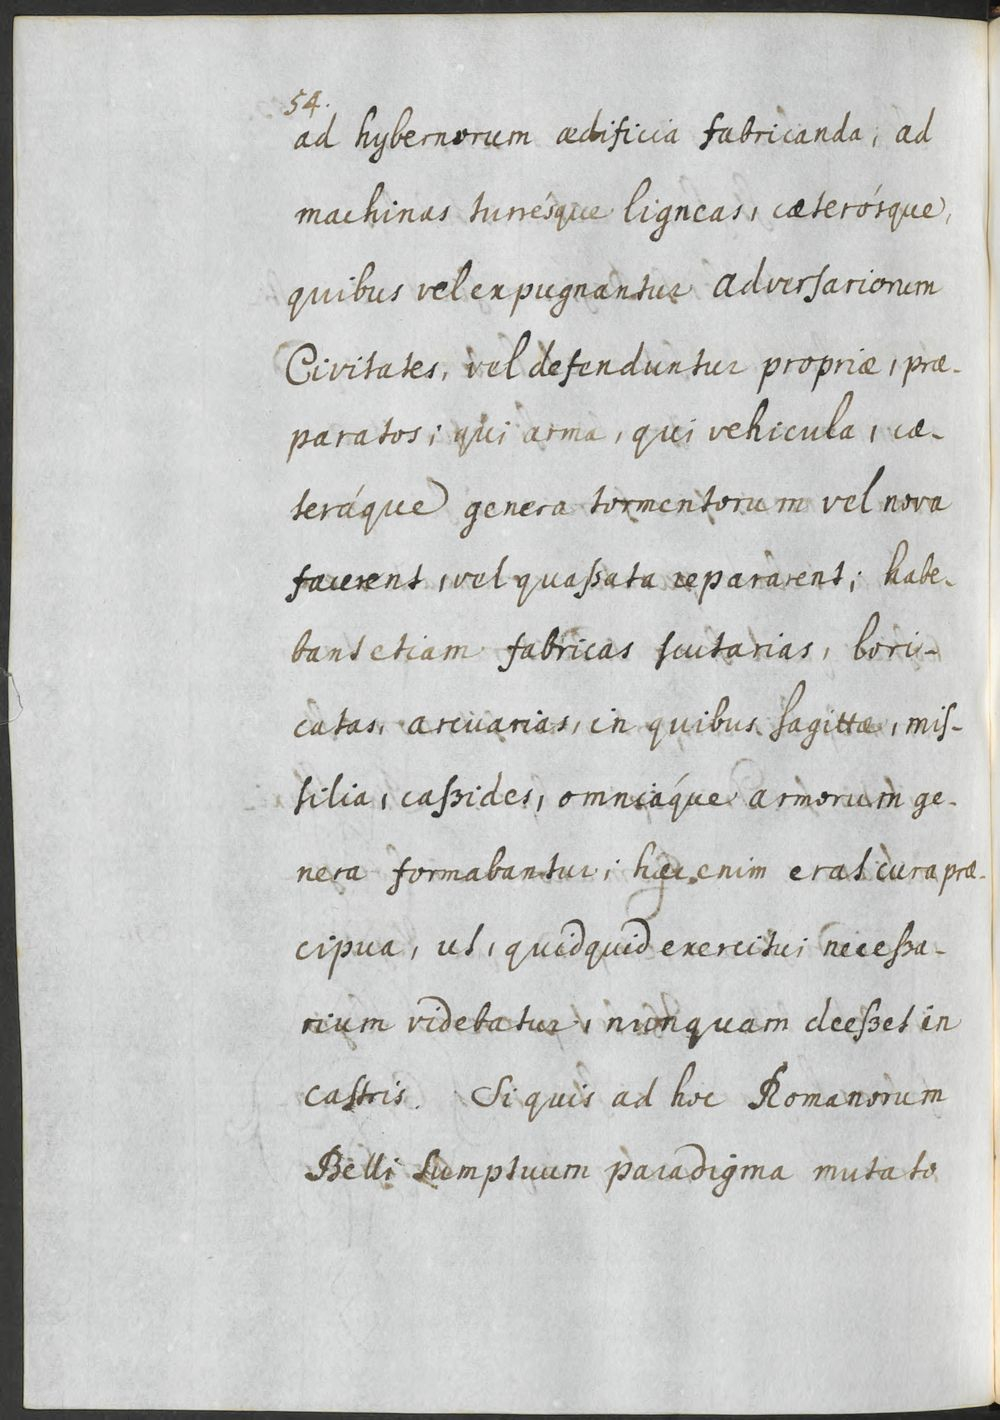 54.
ad hybernorum ædificia fabricanda, ad
machinas turrésque ligneas, cæterósque,
quibus vel expugnantur adversariorum
Civitates, vel defenduntur propriæ, præ-
paratos; qui arma, qui vehicula, cæ-
teráque genera tormentorum vel nova
facerent, vel quaßata repararent; habe-
bant etiam fabricas scutarias, lori-
catas, arcuarias, in quibus sagittæ, mis-
silia, caßides, omniáque armorum ge-
nera formabantur; hæc enim erat cura præ-
cipua, ut, quidquid exercitui neceßa-
rium videbatur, nunquam deeßet in
castris. Si quis ad hoc Romanorum
Belli sumptuum paradigma mutato